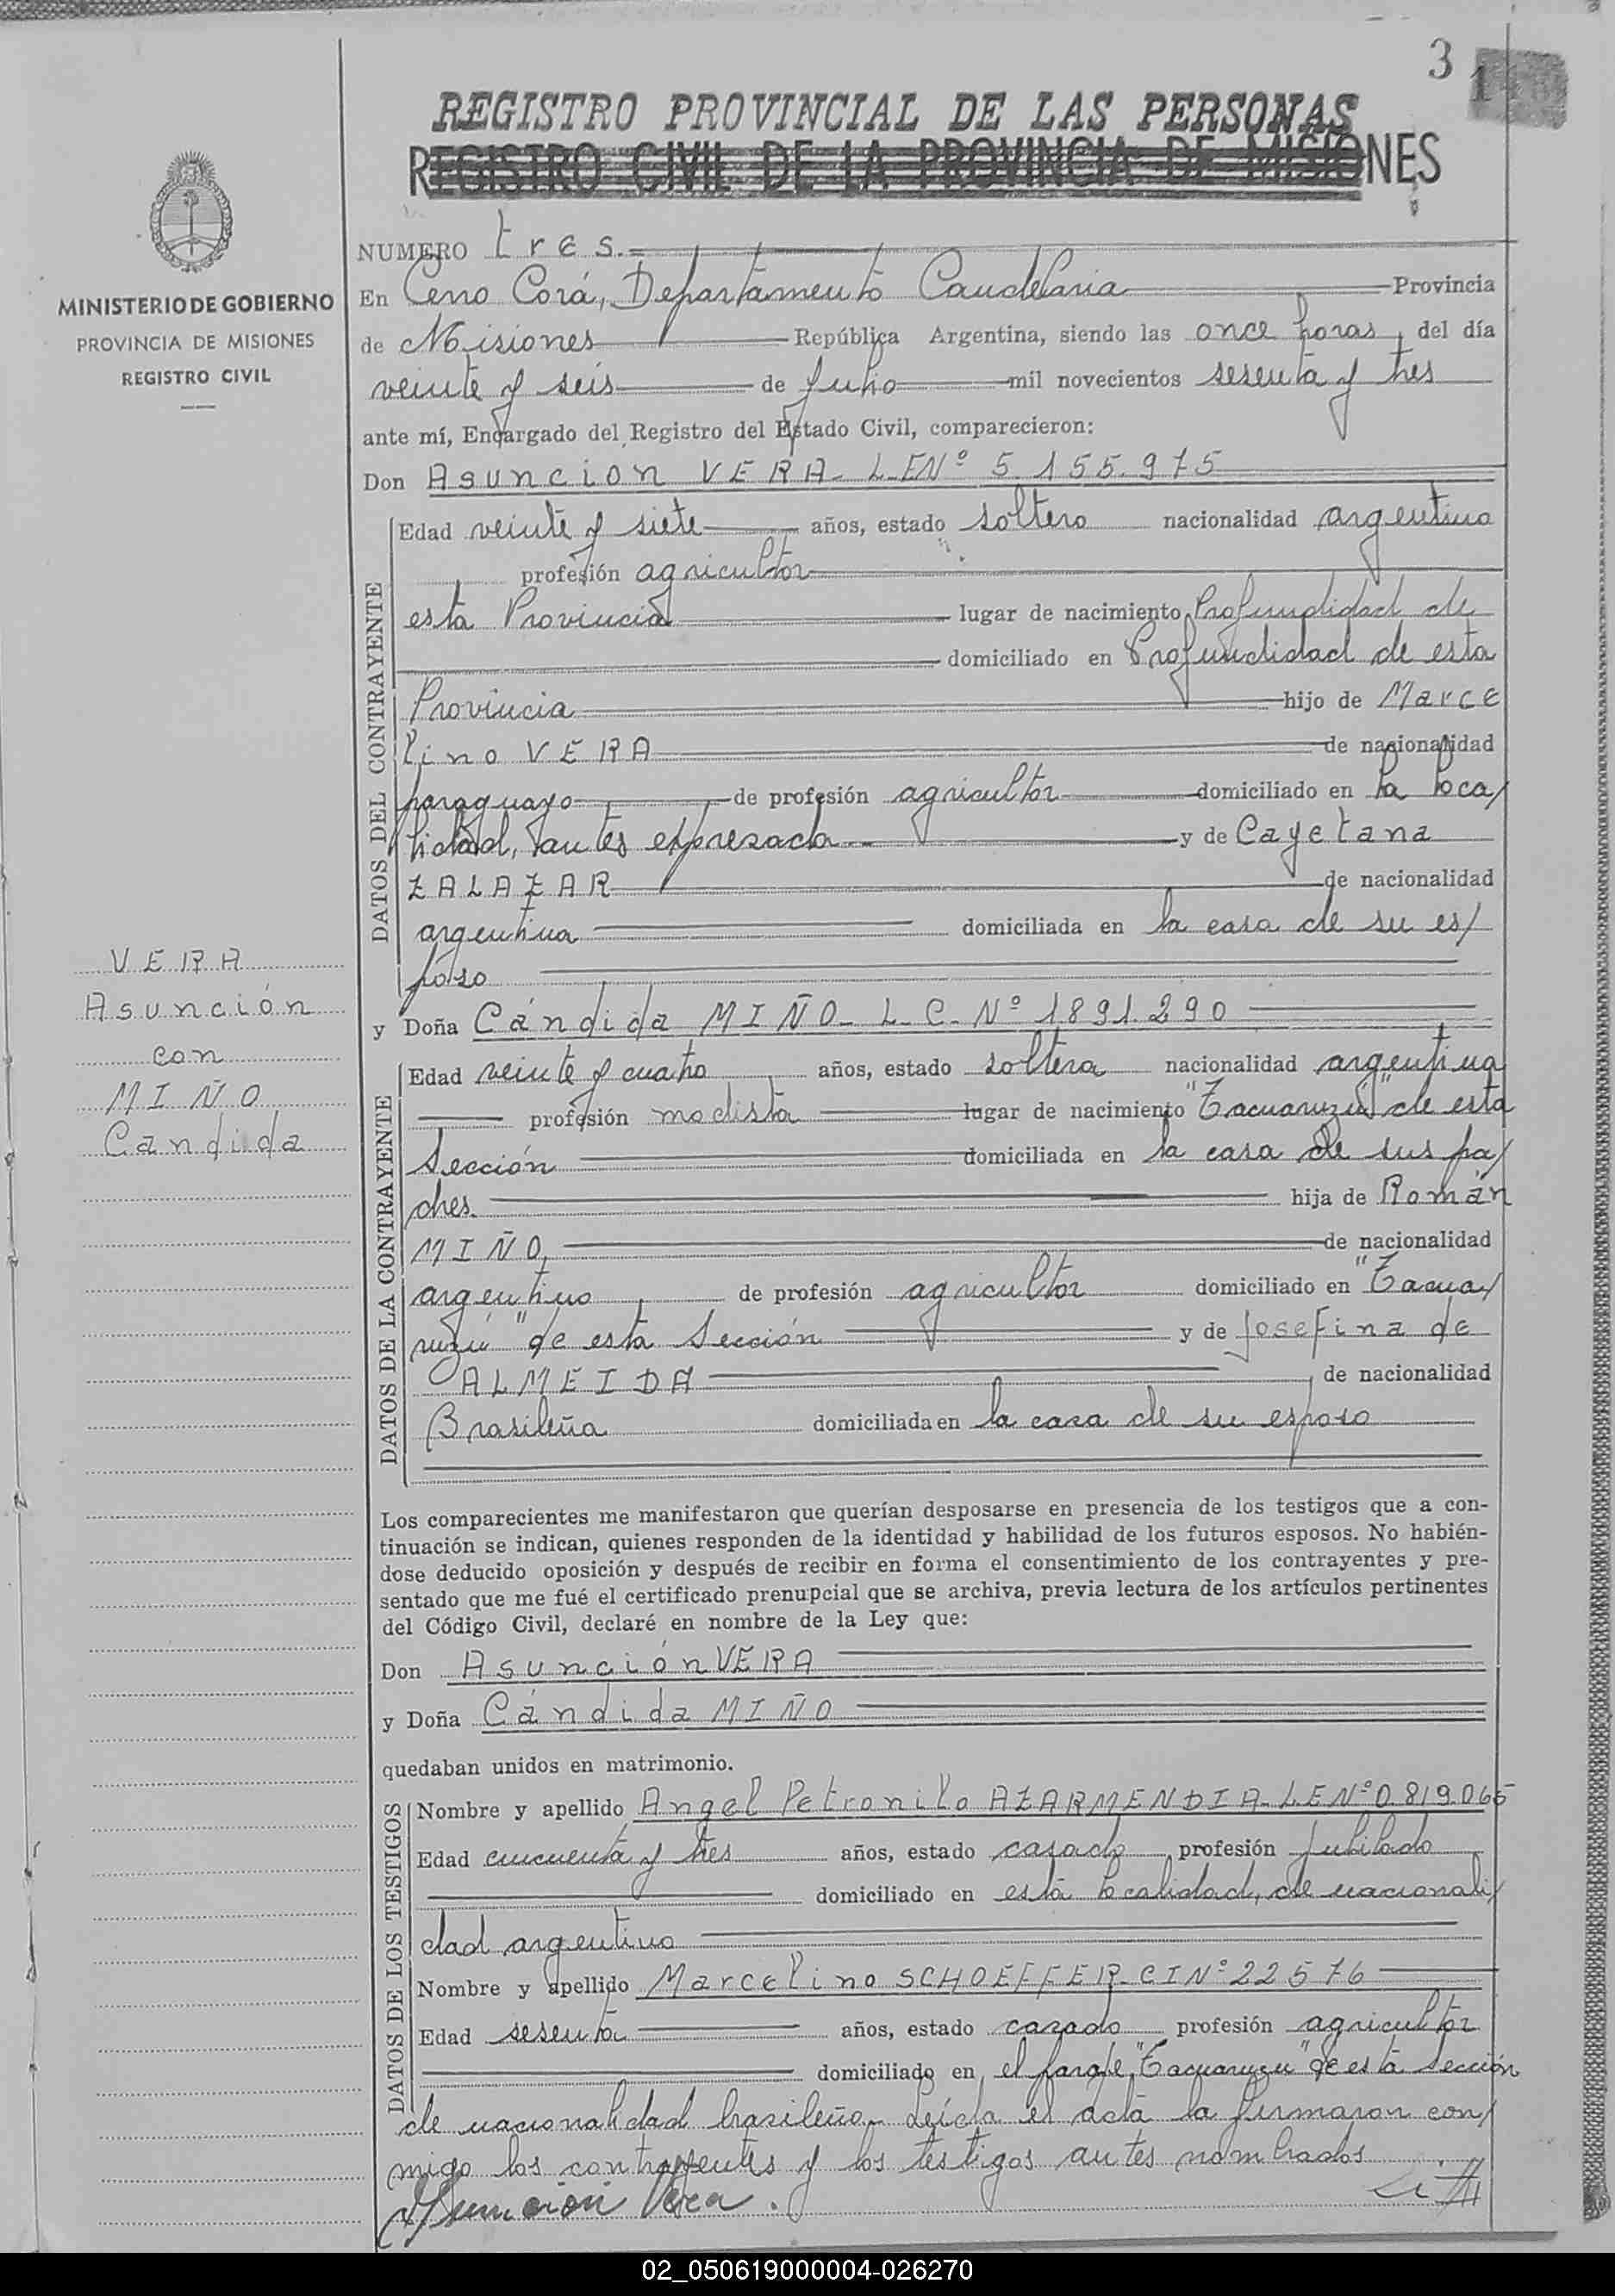 3
REGISTRO PROVINCIAL DE LAS PERSONAS
REGISTRO CIVIL DE LA PROVINCIA DE MISIONES
MINISTERIO DE GOBIERNO
PROVINCIA DE MISIONES
REGISTRO CIVIL
NUMERO tres.
En Cerro Corá, Departamento Candelaria Provincia
de Misiones República Argentina, siendo las once horas, del día
veinte y seis de Julio mil novecientos sesenta y tres
ante mí, Encargado del Registro del Estado Civil, comparecieron:
Don Asunción VERA - L-EN° 5.155.975
DATOS DEL CONTRAYENTE
Edad veinte y siete años, estado soltero nacionalidad argentino
profesión agricultor
esta Provincia lugar de nacimiento Profundidad de
domiciliado en Profundidad de esta
Provincia hijo de Marce
lino VERA de nacionalidad
paraguayo de profesión agricultor domiciliado en la loca/
lidad, antes expresada y de Cayetana
ZALAZAR de nacionalidad
argentina domiciliada en la casa de su es/
poso
VERA
Asunción
con
MIÑO
Candida
y Doña Cándida MIÑO - L-C-N° 1891.290
DATOS DE LA CONTRAYENTE
Edad veinte y cuatro años, estado soltera nacionalidad argentina
profesión modista lugar de nacimiento "Tacuaruzú" de esta
Sección domiciliada en la casa de sus pa/
dres. hija de Román
MIÑO, de nacionalidad
argentino de profesión agricultor domiciliado en "Tacua/
ruzú" de esta Sección y de Josefina de
ALMEIDA de nacionalidad
Brasileña domiciliada en la casa de su esposo
Los comparecientes me manifestaron que querían desposarse en presencia de los testigos que a con-
tinuación se indican, quienes responden de la identidad y habilidad de los futuros esposos. No habién-
dose deducido oposición y después de recibir en forma el consentimiento de los contrayentes y pre-
sentado que me fué el certificado prenupcial que se archiva, previa lectura de los artículos pertinentes
del Código Civil, declaré en nombre de la Ley que:
Don Asunción VERA
y Doña Cándida MIÑO
quedaban unidos en matrimonio.
DATOS DE LOS TESTIGOS
Nombre y apellido Angel Petronilo AZARMENDIA - LEN° 0.819.065
Edad cincuenta y tres años, estado casado profesión Jubilado
domiciliado en esta localidad, de nacionali/
dad argentino
Nombre y apellido Marcelino SCHOEFFER - CIN° 22576
Edad sesenta años, estado casado profesión agricultor
domiciliado en el paraje "Tacuaruzu" de esta Sección
de nacionalidad brasileño - Leída el acta la firmaron con/
migo los contrayentes y los testigos antes nombrados
Asuncion Vera.
02_050619000004-026270